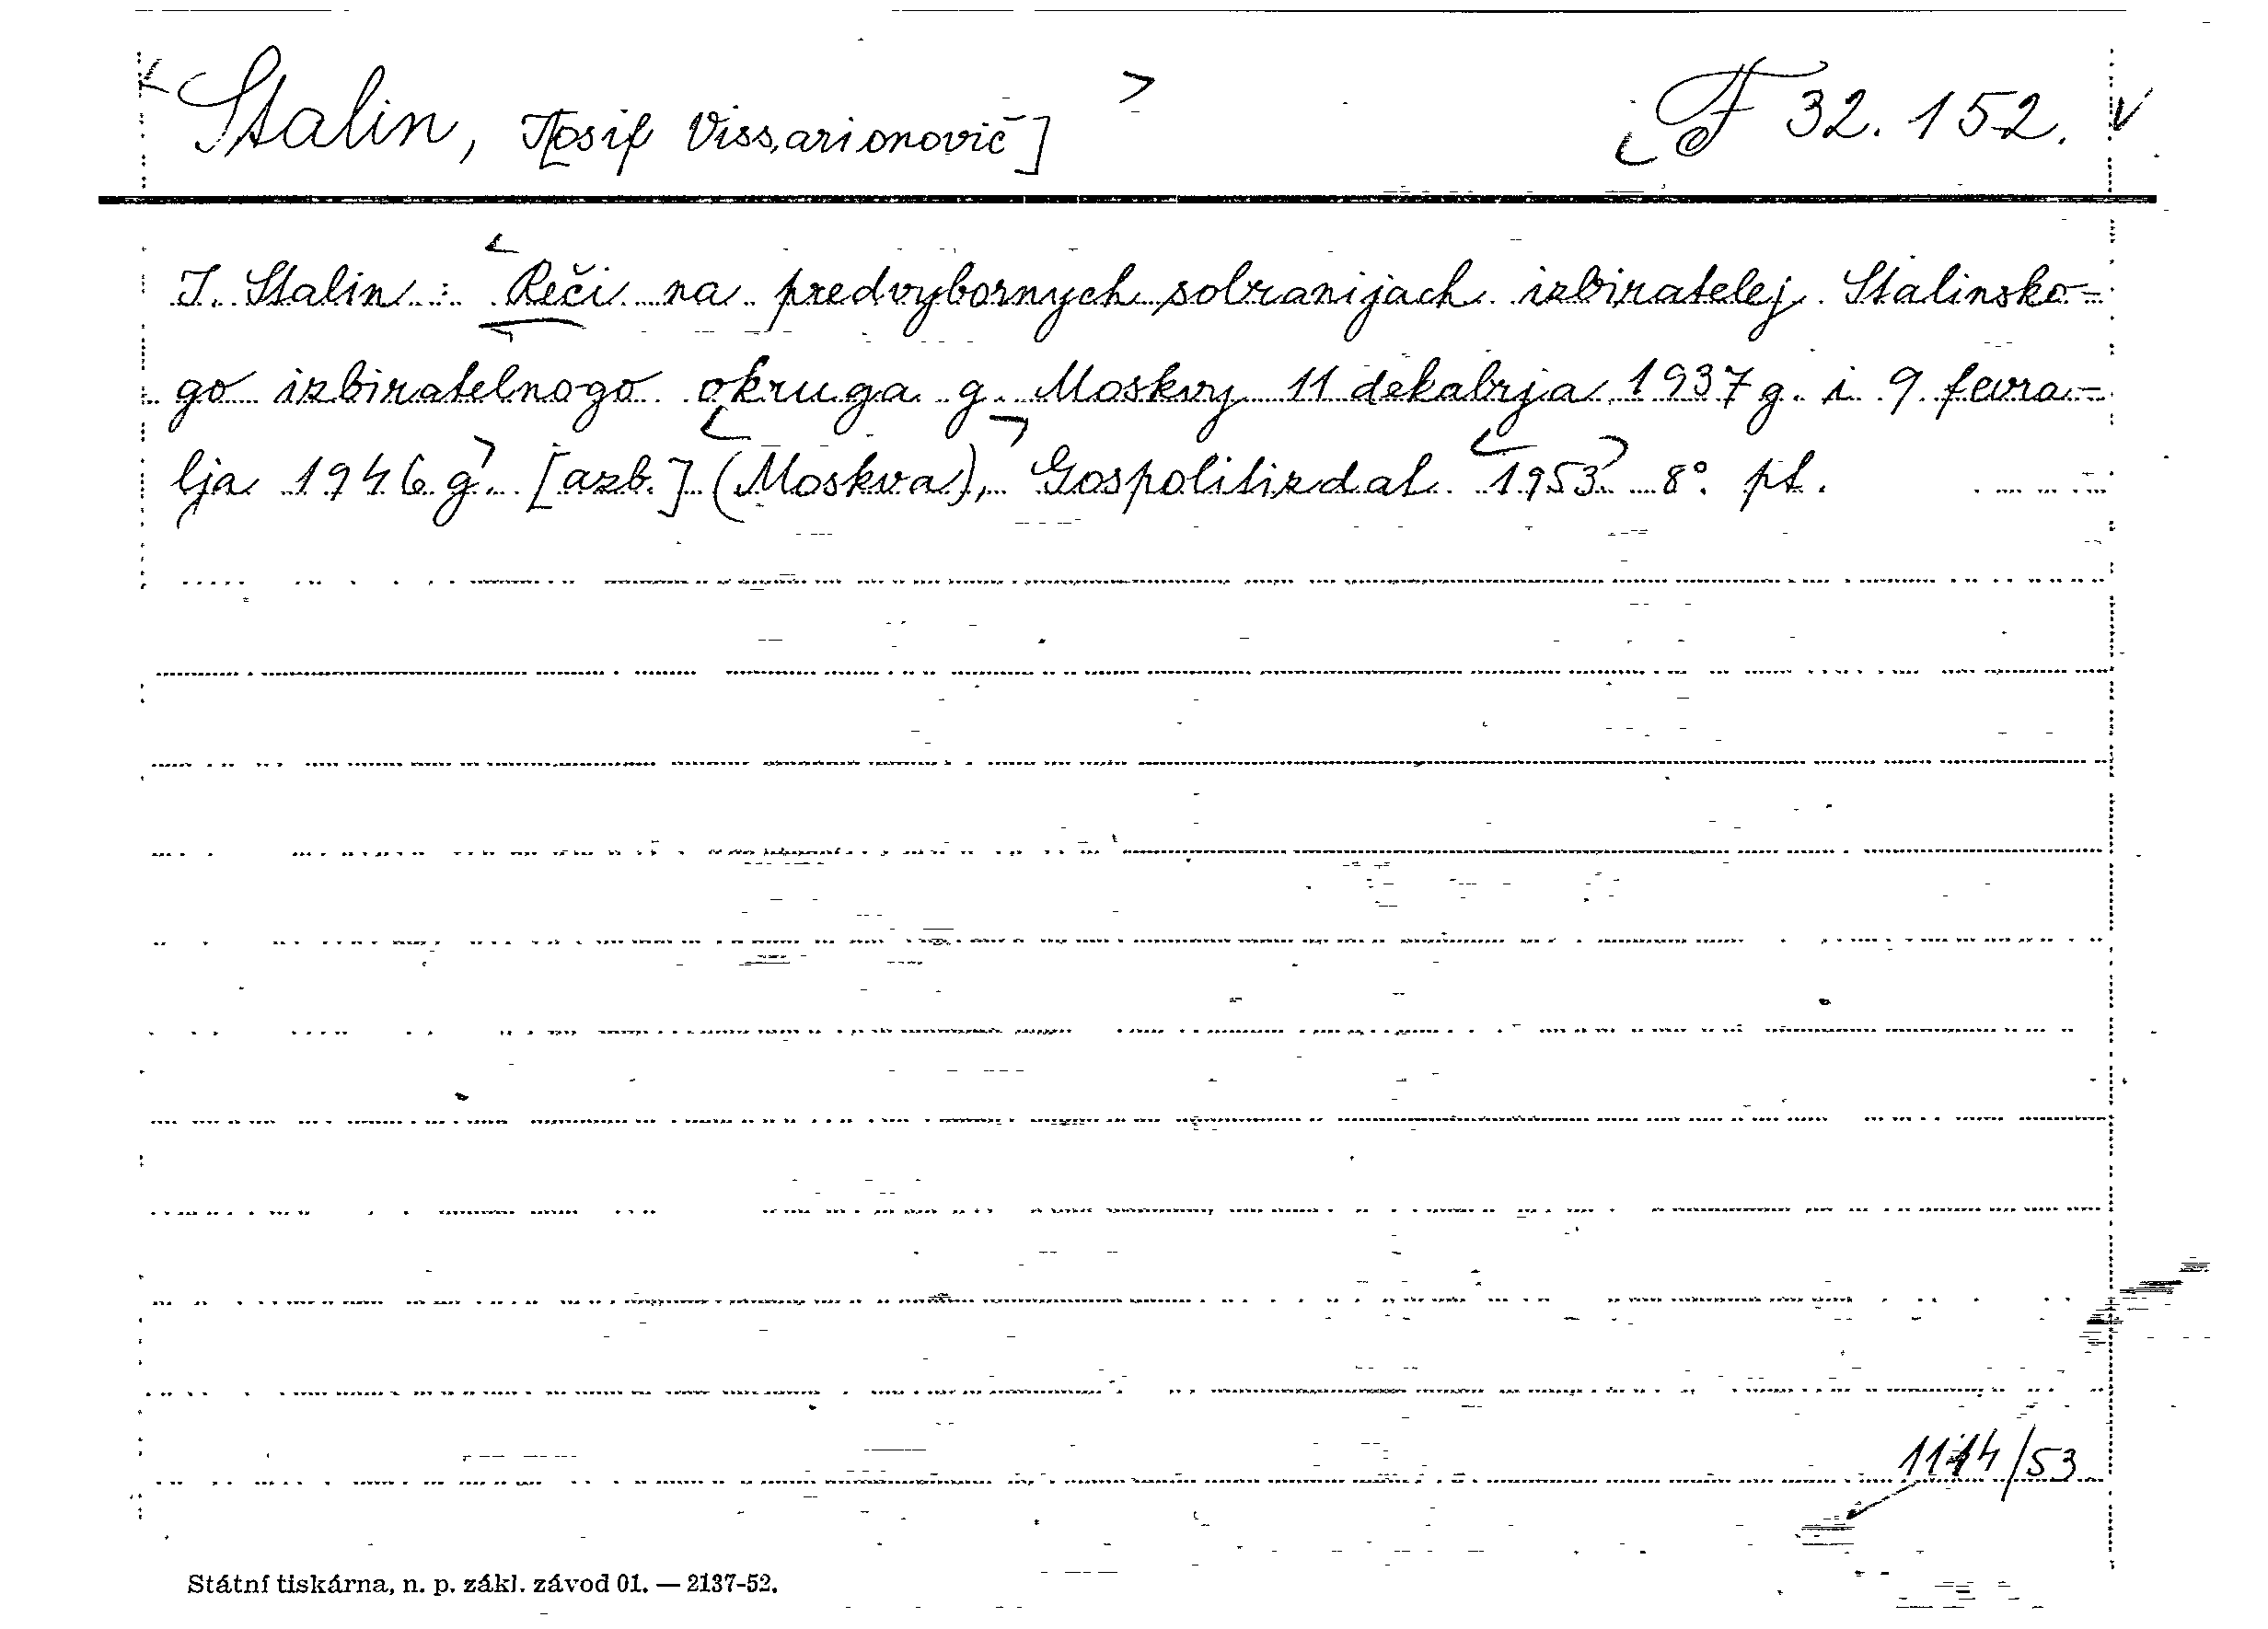 Stalin, I[osif Vissarionovič] F 32.152.
I. Stalin: Reči na predvybornych sobranijach izbiratelej Stalinsko-
go izbiratelnogo okruga g. Moskvy 11 dekabrja 1937 g. i 9 fevra-
lja 1946 g. [azb.] (Moskva), Gospolitizdat 1953. 8°. pt.
1114/53
Státní tiskárna, n. p. zákl. závod 01. — 2137-52.